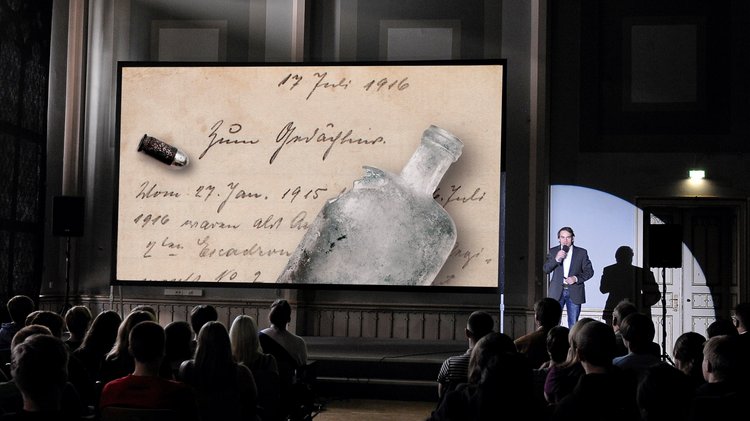 17 Juli 1916
Zum Gedächtnis.
Vom 27. Jan. 1915 Juli
1916 waren als
2ten Escadron